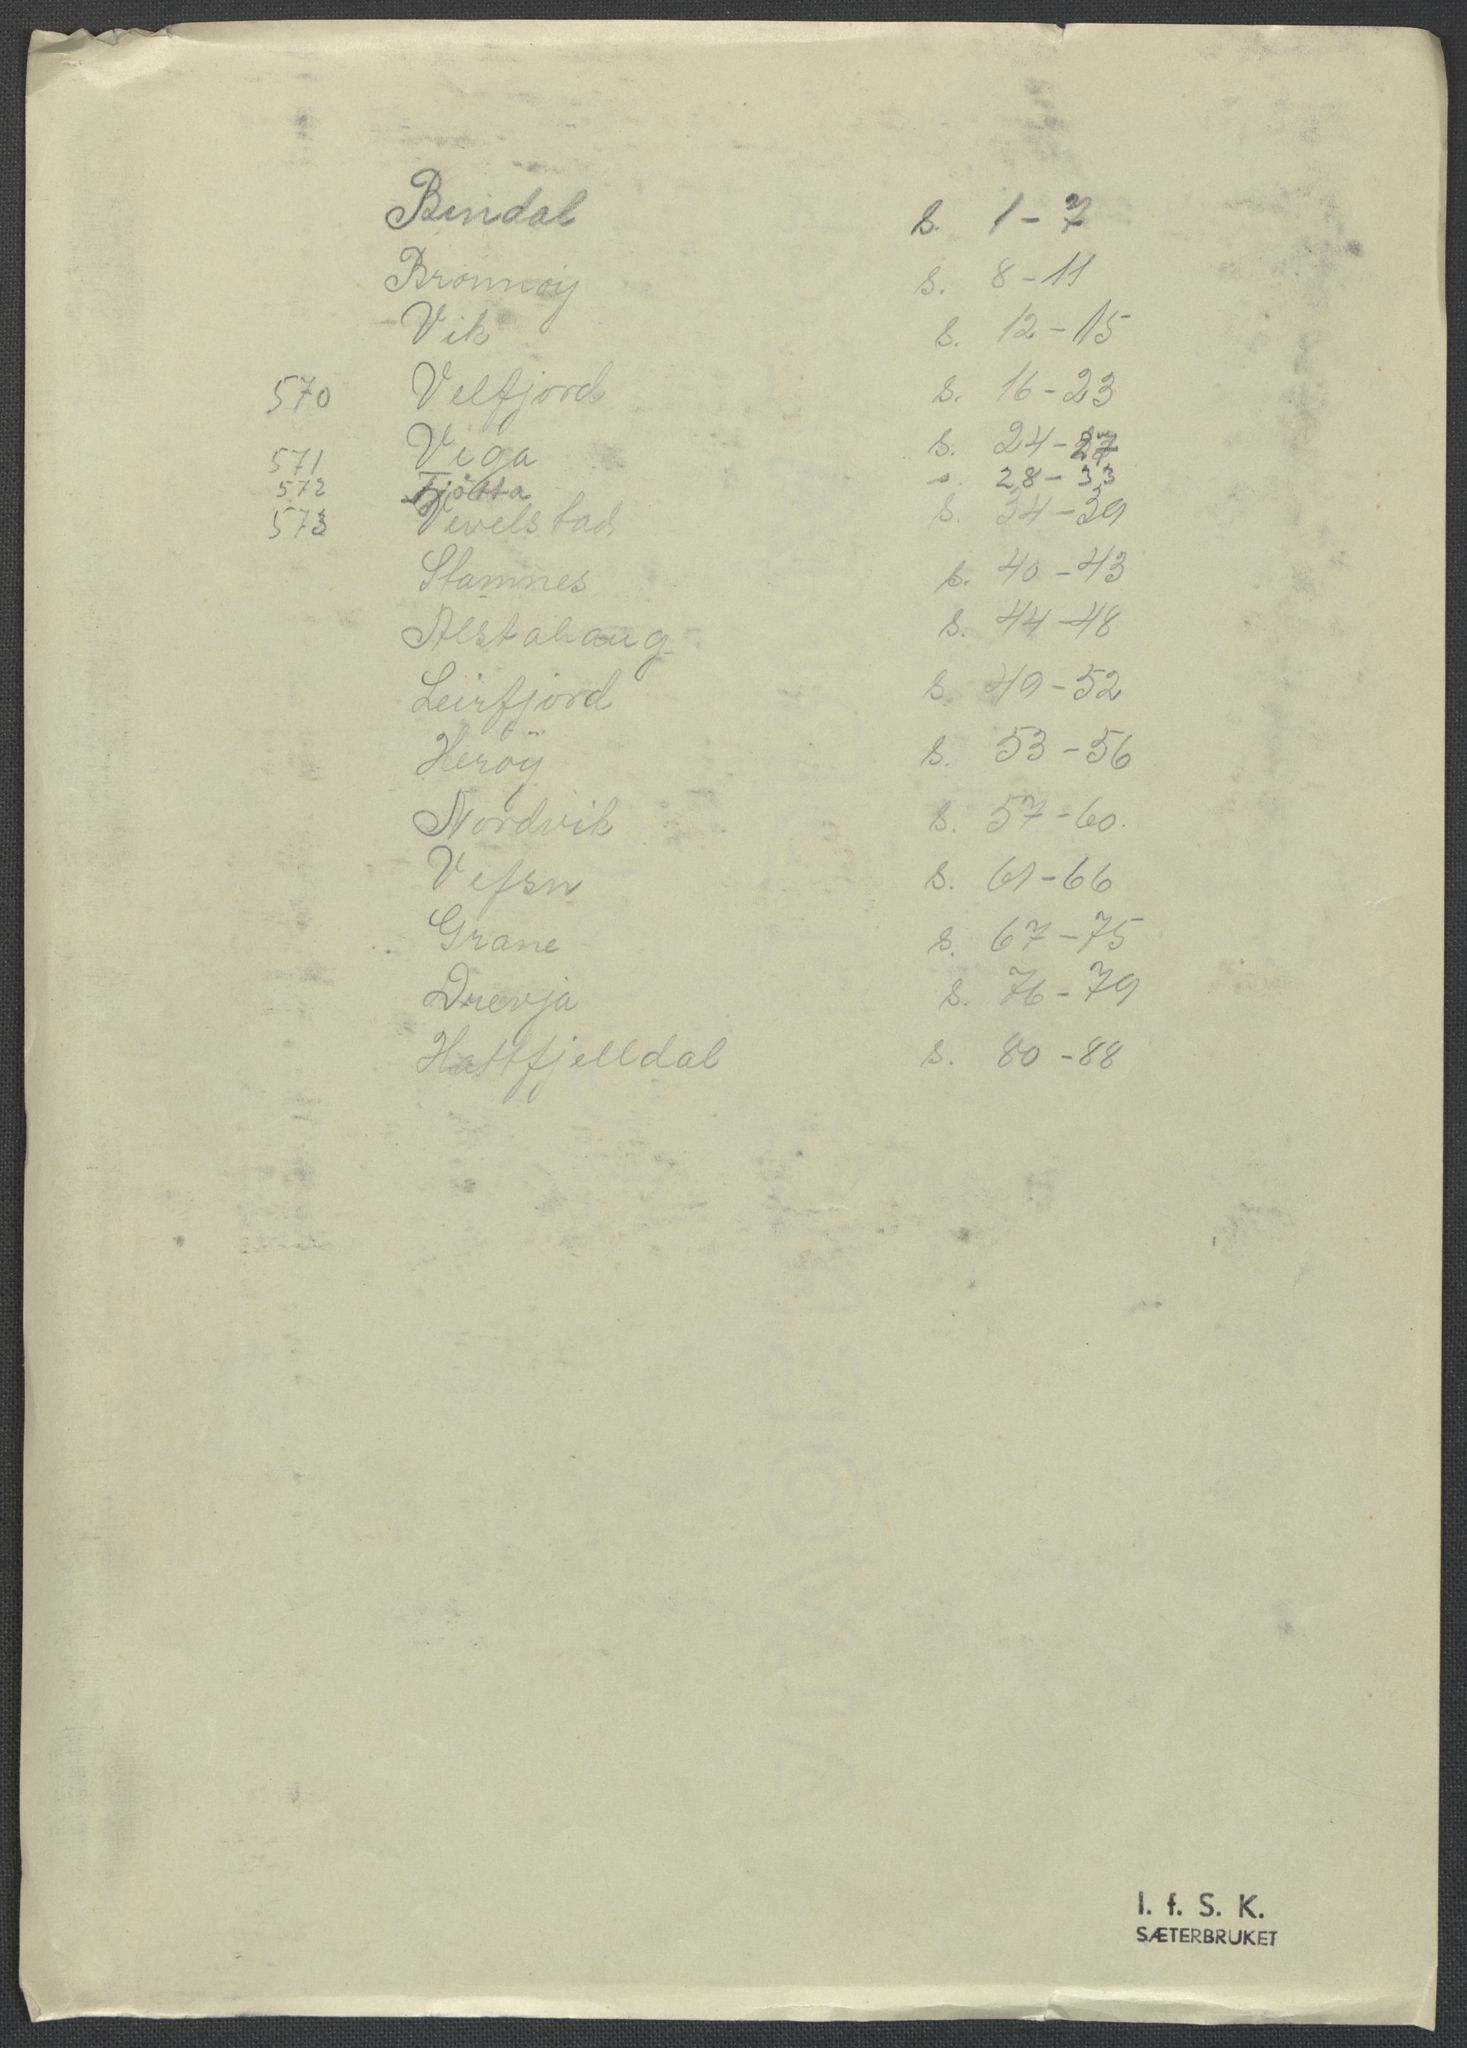 Bindal s. 1-7
Brönnöy s. 8-11
Vik s. 12-15
570 Velfjord s. 16-23
571 Vega s. 24-27
572 Tjötta s. 28-33
573 Vevelstad s. 34-39
Stamnes s. 40-43
Alstahaug s. 44-48
Leirfjord s. 49-52
Heröy s. 53-56
Nordvik s. 57-60.
Vefsn s. 61-66
Grane s. 67-75
Drevja s. 76-79
Hattfjelldal s. 80-88
I. f. S. K.
SÆTERBRUKET